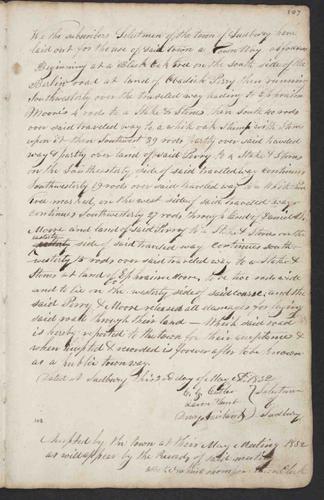 107
We the subscribers Selectmen of the town of Sudbury have
laid out for the use of said town a Town Way as follows
Beginning at a Black Oak tree on the south side of the
Berlin road at land of Perry then running
Southwesterly over the travelled way leading to Ephraim
Moore's 4 rods to a Stake & Stones, then South 40 rods
over said travelled way to a white oak Stump with Stones
upon it then Southwest 39 rods partly over said traveled
way & partly over land of said Perry to a Stake & Stones
on the Southeasterly side of said traveled way continues
Southwesterly 19 rods over said traveled way to a White
tree marked, on the west side of said traveled way
continues Southwesterly 27 rods through land of
Moore and land of said Perry to a Stake & Stones on the
westerly
side of said traveled way continues South-
westerly rods over said travelled way to a Stake &
Stones at land of Ephraim Moore, to be two rods wide
and to lie on the westerly side of said course, and the
said Perry & Moore released all damages for laying
said road through their land — Which said road
is hereby reported to the town for their acceptance &
when accepted & recorded is forever after to be known
as a public town way.
Dated at Sudbury this 3d day of May AD. 1852
Selectmen
of
Sudbury
Accepted by the town at their May Meeting 1852
as will appear by the Records of said meeting
Clerk